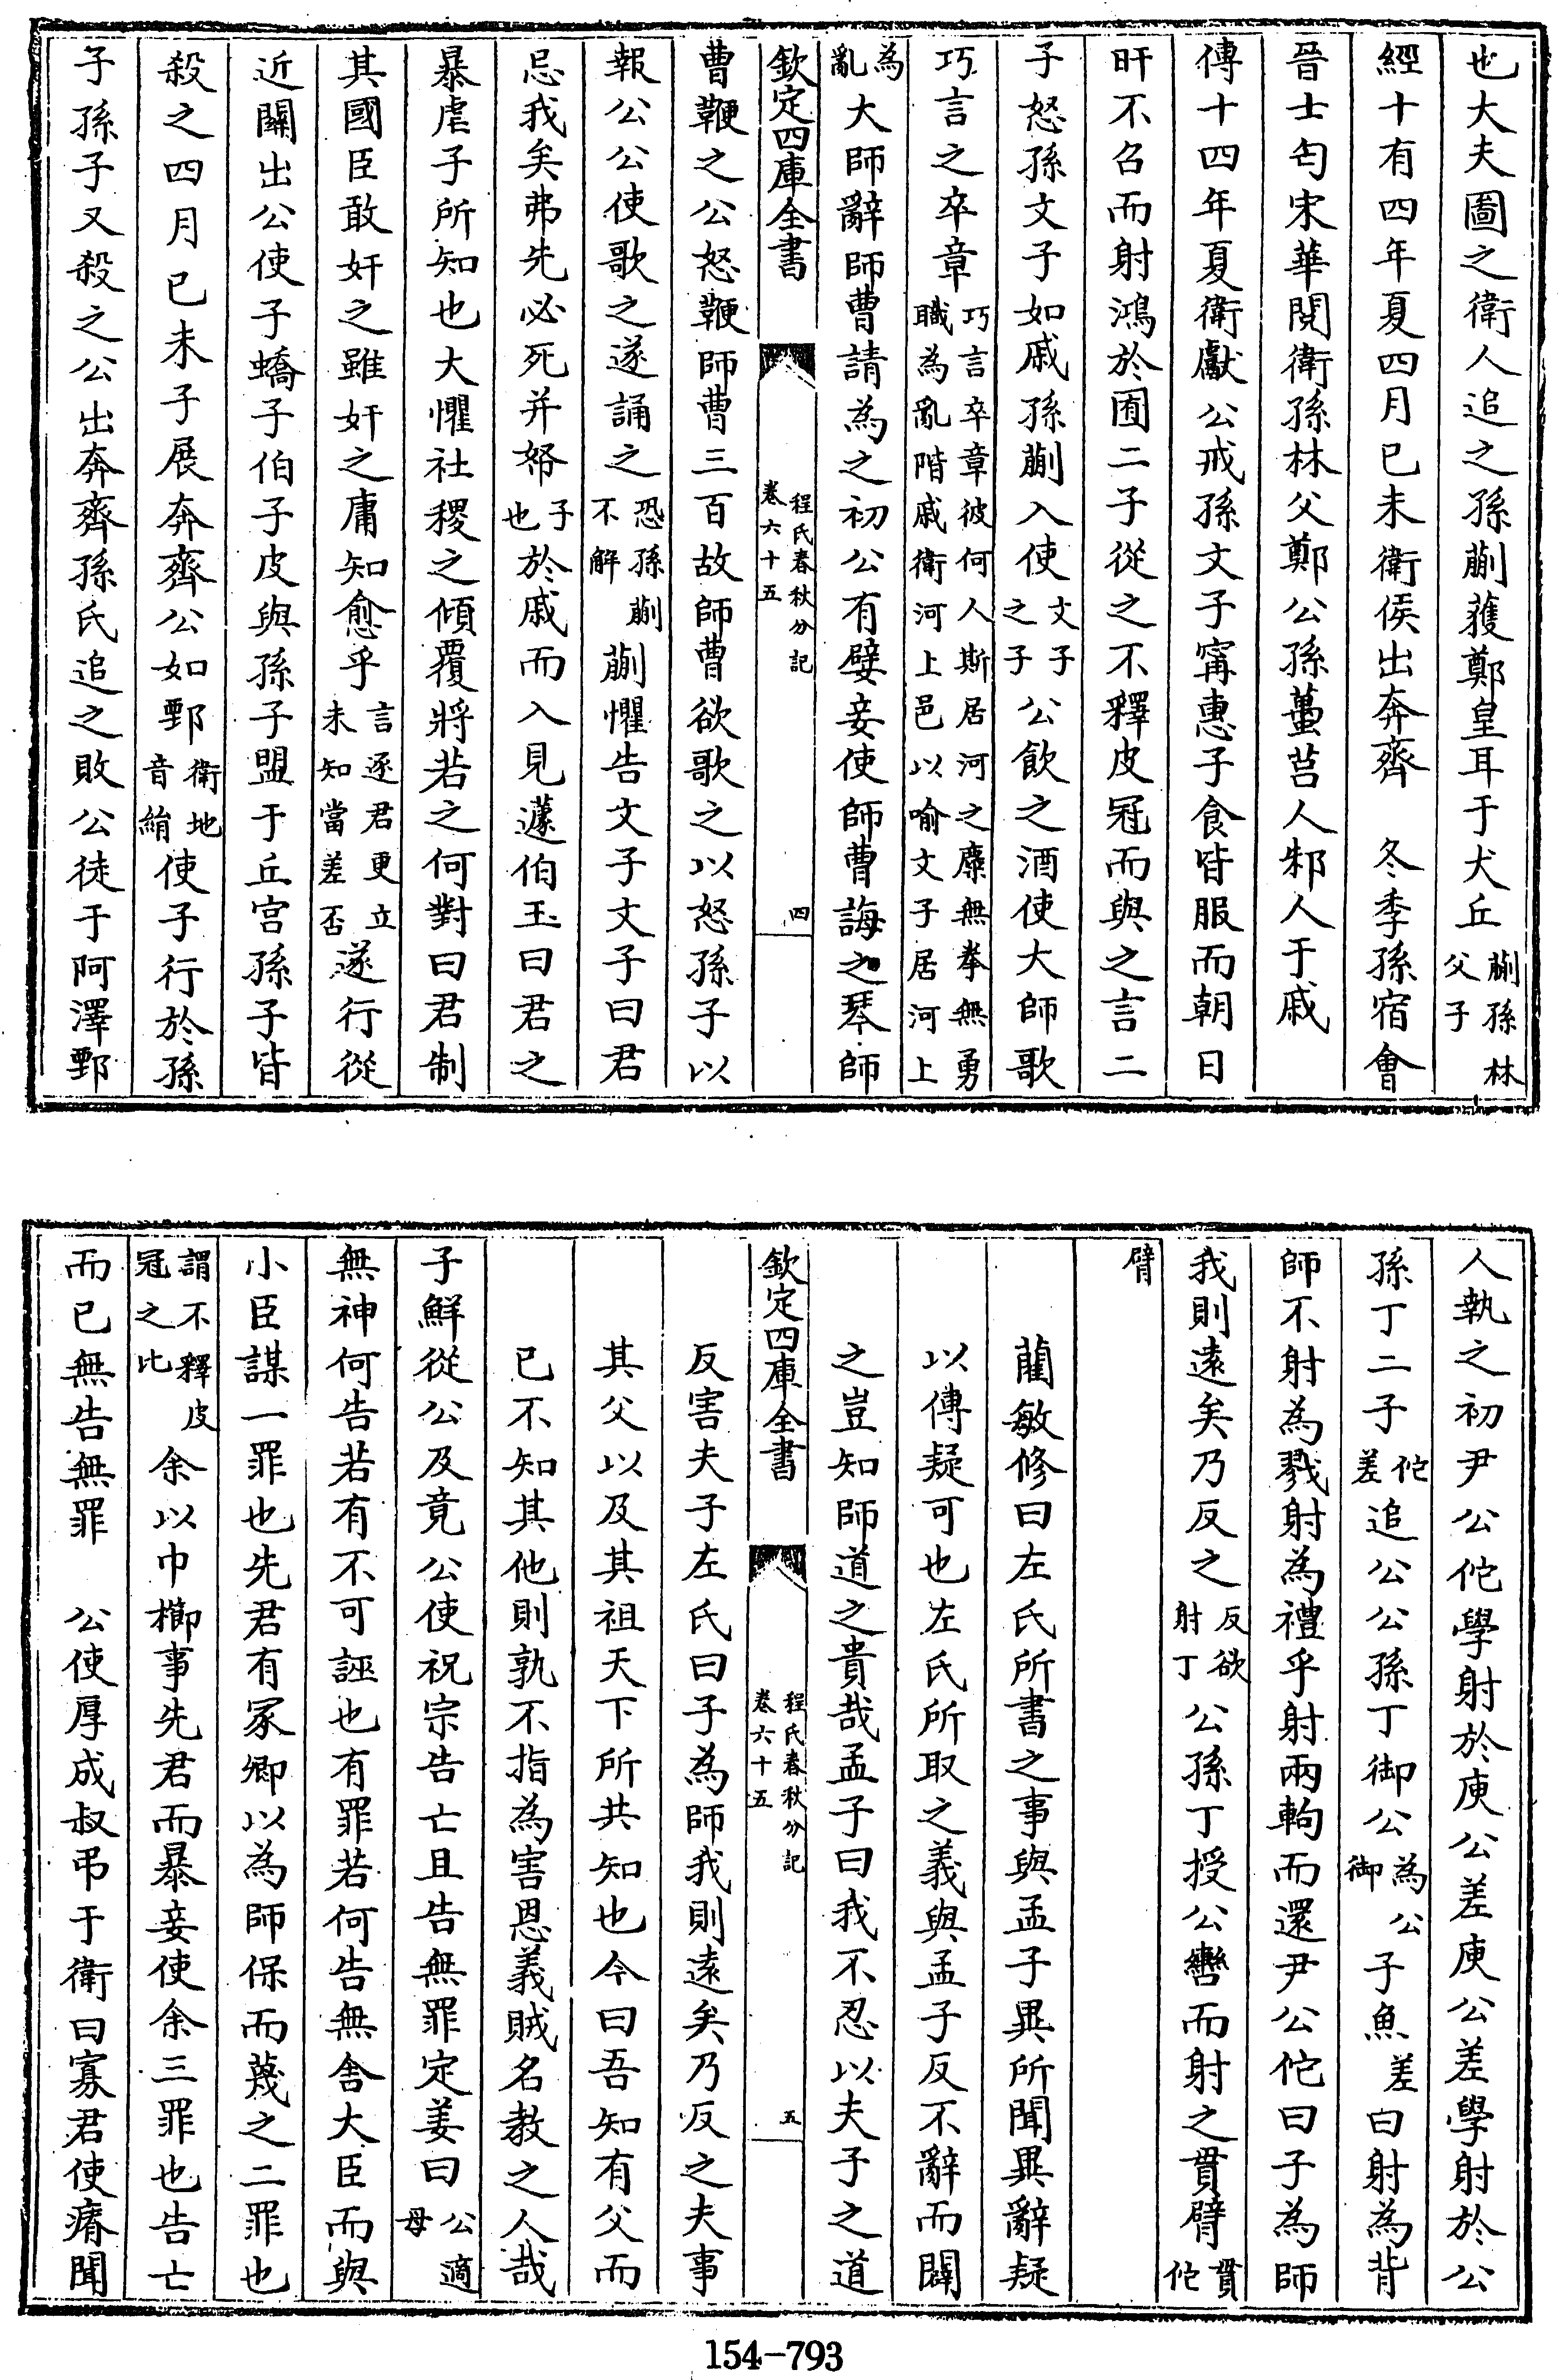 也大夫圖之衛人追之孫蒯獲鄭皇耳于犬丘蒯孫林父子
經十有四年夏四月已未衛侯出奔齊　冬季孫宿會
晉士匄宋華閱衛孫林父鄭公孫蠆莒人邾人于戚
傳十四年夏衛獻公戒孫文子甯惠子食皆服而朝日
旰不召而射鴻於囿二子從之不釋皮冠而與之言二
子怒孫文子如戚孫蒯入使文子之子公飲之酒使大師歌
巧言之卒章巧言卒章彼何人斯居河之麋無拳無勇職為亂階戚衛河上邑以喻文子居河上
為亂大師辭師曹請為之初公有嬖妾使師曹誨之琴師
欽定四庫全書　程氏春秋分記卷六十五　四
曹鞭之公怒鞭師曹三百故師曹欲歌之以怒孫子以
報公公使歌之遂誦之恐孫蒯不解蒯懼告文子文子曰君
忌我矣弗先必死并帑子也於戚而入見蘧伯玉曰君之
暴虐子所知也大懼社稷之傾覆將若之何對曰君制
其國臣敢奸之雖奸之庸知愈乎言逐君更立未知當差否遂行從
近關出公使子蟜子伯子皮與孫子盟于丘宫孫子皆
殺之四月已未子展奔齊公如鄄衛地音絹使子行於孫
子孫子又殺之公出奔齊孫氏追之敗公徒于阿澤鄄
人執之初尹公佗學射於庾公差庾公差學射於公
孫丁二子佗差追公公孫丁御公為公御子魚差曰射為背
師不射為戮射為禮乎射兩軥而還尹公佗曰子為師
我則遠矣乃反之反欲射丁公孫丁授公轡而射之貫臂貫佗
臂
藺敏修曰左氏所書之事與孟子異所聞異辭疑
以傳疑可也左氏所取之義與孟子反不辭而闢
之豈知師道之貴哉孟子曰我不忍以夫子之道
欽定四庫全書　程氏春秋分記卷六十五　五
反害夫子左氏曰子為師我則遠矣乃反之夫事
其父以及其祖天下所共知也今曰吾知有父而
已不知其他則孰不指為害恩義賊名教之人哉
子鮮從公及竟公使祝宗告亡且告無罪定姜曰公適母
無神何告若有不可誣也有罪若何告無舍大臣而與
小臣謀一罪也先君有冢卿以為師保而蔑之二罪也
謂不釋皮冠之比余以巾櫛事先君而暴妾使余三罪也告亡
而已無告無罪　公使厚成叔弔于衛曰寡君使瘠聞
154-793